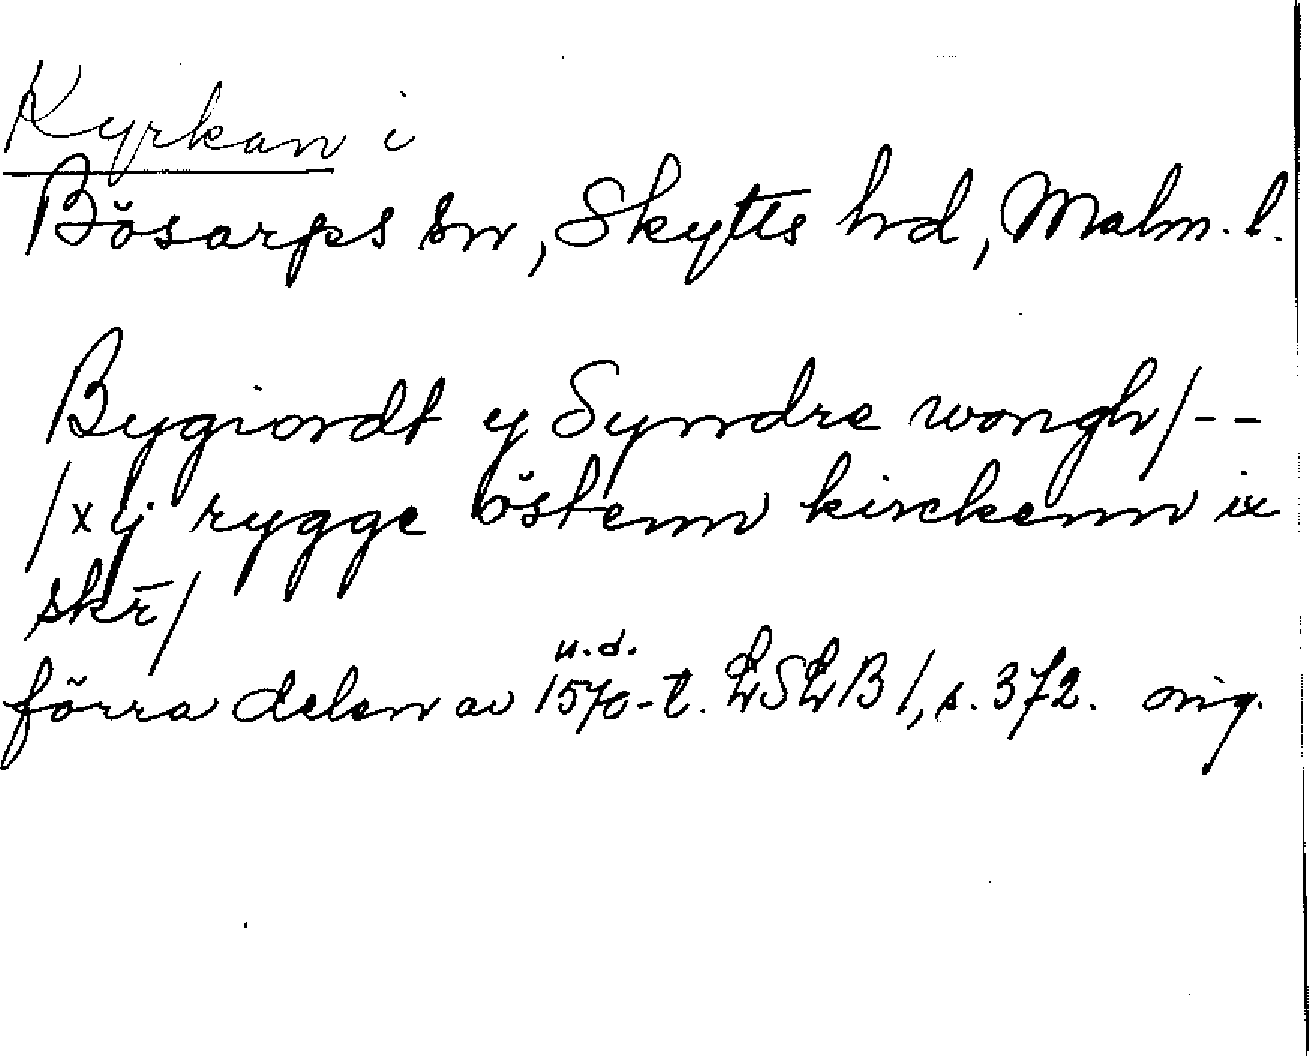 Kyrkan i
Bösarps sn, Skytts hd, Malm. l.
Bygiordt y Syndre wongh/--
/xij rygge östenn kirckenn ix
skr̄/
u.d.
förra delen av 1570-t. LSLB 1, s. 372. orig.